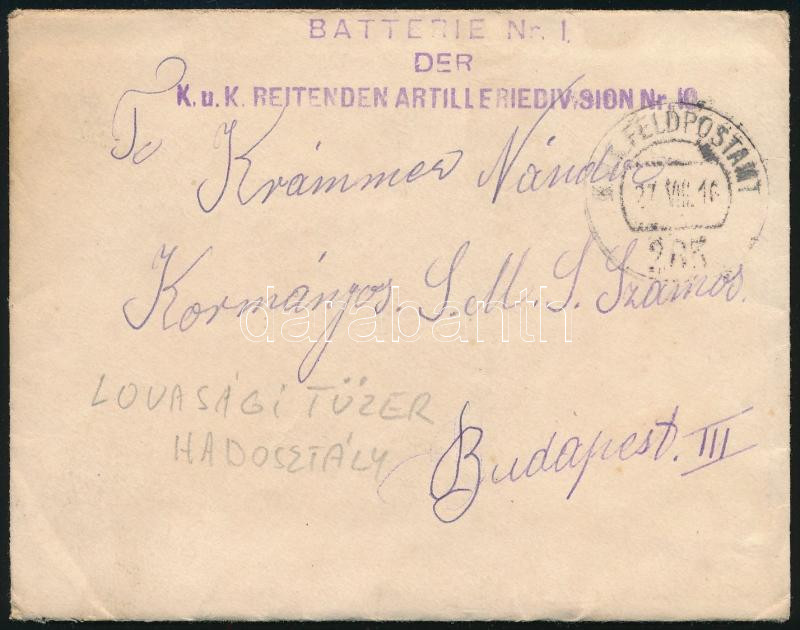 BATTERIE Nr. 1.
DER
K. u. K. REITENDEN ARTILLERIEDIVISION Nr. 10
FELDPOSTAMT
27. VIII. 16
To Krámmer Nándor
Kormányos. S. M. S. Szamos.
darabanth
LOVASÁGI TÜZÉR
HADOSZTÁLY
Budapest. III